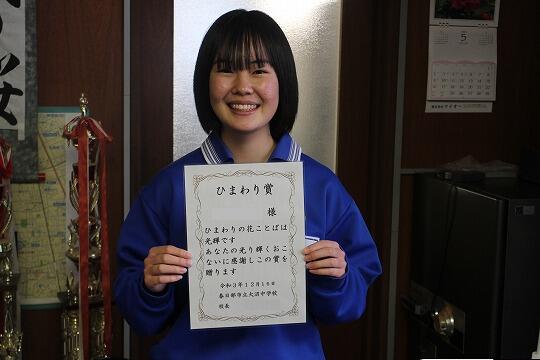 ひまわり賞
様
ひまわりの花ことばは
光輝です
あなたの光り輝くおこ
ないに感謝しこの賞を
贈ります
令和3年12月16日
春日部市立大沼中学校
校長
5